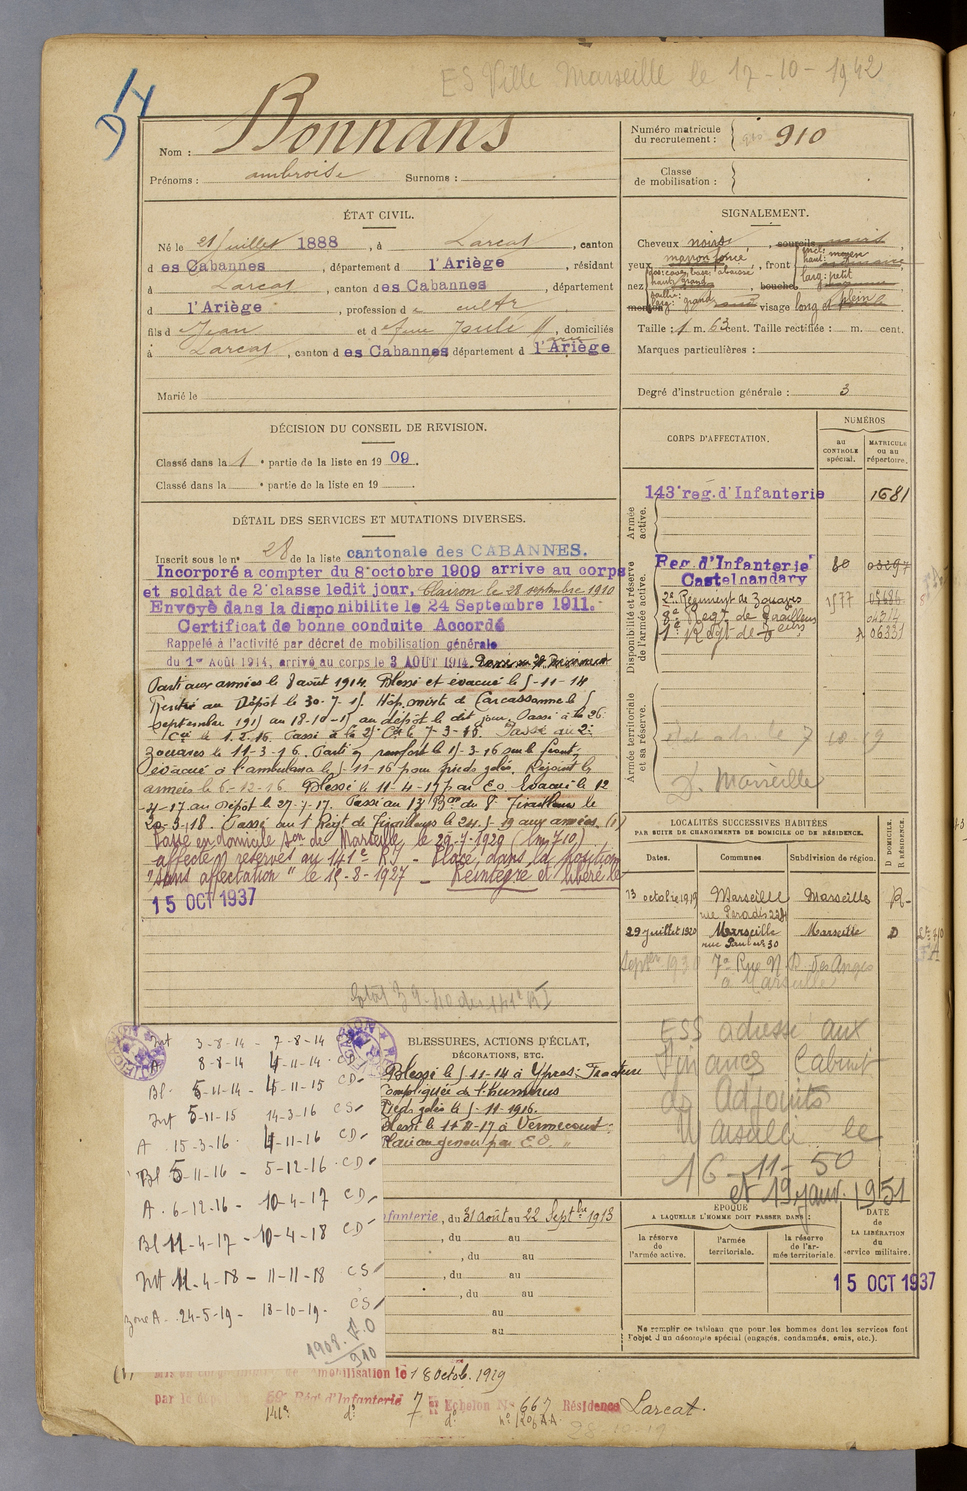 ES Ville Marseille le 17-10-1942
Nom : Bonnans
Prénoms : ambroise Surnoms :
Numéro matricule du recrutement : 910
Classe de mobilisation :
ÉTAT CIVIL.
Né le 21 Juillet 1888, à Larcat, canton
d es Cabannes, département d l'Ariège, résidant
à Larcat, canton d es Cabannes, département
d l'Ariège, profession d cultr
fils d Jean et d , domiciliés
à Larcat, canton d es Cabannes département d l'Ariège
Marié le
SIGNALEMENT.
Cheveux noirs, sourcils noirs,
yeux marron foncé, front
nez , bouche
menton visage long et plein
Taille : 1 m. 63 cent. Taille rectifiée : m. cent.
Marques particulières :
Degré d'instruction générale : 3
DÉCISION DU CONSEIL DE REVISION.
Classé dans la 1 e partie de la liste en 1909.
Classé dans la e partie de la liste en 19 .
CORPS D'AFFECTATION.
NUMÉROS
AU CONTROLE spécial.
MATRICULE ou au répertoire.
Armée active.
143e reg. d'Infanterie 1681
Disponibilité et réserve de l'armée active.
Reg. d'Infanterie Castelnaudary 80
2e Régiment de Zouaves 1577
8e Regt de Tirailleurs
1e Regt de 06331
Armée territoriale et sa réserve.
Marseille
DÉTAIL DES SERVICES ET MUTATIONS DIVERSES.
Inscrit sous le n° 28 de la liste cantonale des CABANNES.
Incorporé a compter du 8 octobre 1909 arrive au corps
et soldat de 2e classe ledit jour, Clairon le 28 septembre 1910
Envoyé dans la disponibilite le 24 Septembre 1911.
Certificat de bonne conduite Accordé
Rappelé à l'activité par décret de mobilisation générale
du 1er Août 1914, arrivé au corps le 3 AOUT 1914.
Parti aux armées le 8 août 1914 Blessé et évacué le 5-11-14
Rentré au Dépôt le 30-7-15 Hôp. mixte de Carcassonne le 5
septembre 1915 au 18-10-15 au dépôt le dit jour. Passé à la 26
Cie le 1.2.16 Passé à la 25e Cie le 7-3-16. Passé au 2e
Zouaves le 11-3-16. Parti en renfort le 15-3-16 sur le front,
évacué à l'ambulance le 5-11-16 pour pieds gelés. Rejoint les
armées le 6-12-16. Blessé le 11-4-17 par E.O. Evacué le 12
-4-17 au Dépôt le 27-7-17. Passé au 13 Bon du 8 Tirailleurs le
20-3-18. Passé au 1 Régt de Tirailleurs le 24-5-19 aux armées (1)
Passé en domicile Son de Marseille le 29-7-1920 (lm 710)
affecté réserves au 141e RI - Placé dans la position
"sans affectation" le 15-8-1927 - Réintégré et libéré le
15 OCT 1937
LOCALITÉS SUCCESSIVES HABITÉES
PAR SUITE DE CHANGEMENTS DE DOMICILE OU DE RÉSIDENCE.
Dates. Communes Subdivision de région. D DOMICILE. R RÉSIDENCE.
13 octobre 1919 Marseille rue Paradis 228 Marseille R-
29 Juillet 1920 Marseille 30 Marseille D
Septbre 1930 7e Rue N.D. des Anges à Marseille
ESS adresse aux
Finances Cabinet
des Adjoints
Marseille le
16-11-50
et 19 janv. 1951
BLESSURES, ACTIONS D'ÉCLAT,
DÉCORATIONS, ETC.
Blessé le 5-11-14 à Ypres: Fracture
compliquée de l'humérus
Pieds gelés le 5-11-1916.
Blessé le 11-4-17 à Vermecourt:
Plaie au genou par E.O.
3-8-14 - 7-8-14
8-8-14 4-11-14 CD
Bl 5-11-14 - 4-11-15 CD
Int 5-11-15 14-3-16 CS
A 15-3-16 4-11-16 CD
Bl 5-11-16 - 5-12-16 CD
A. 6-12-16 - 10-4-17 CD
Bl 11-4-17 - 10-4-18 CD
Int 11-4-18 - 11-11-18 CS
Zone A - 24-5-19 - 18-10-19 - CS
1908. R.O
910
nfanterie, du 31 août au 22 Septbre 1913
, du au
, du au
, du au
, du au
au
au
ÉPOQUE
A LAQUELLE L'HOMME DOIT PASSER DANS :
la réserve de l'armée active.
l'armée territoriale.
la réserve de l'armée territoriale.
DATE DE LA LIBÉRATION du service militaire.
15 OCT 1937
Ne remplir ce tableau que pour les hommes dont les services font
l'objet d'un décompte spécial (engagés, condamnés, omis, etc.).
(1) mobilisation le 18 octob. 1919
par le Régt d'Infanterie 7e Echelon No 667 Résidence Larcat.
141e do 7 do no 1206 AA.